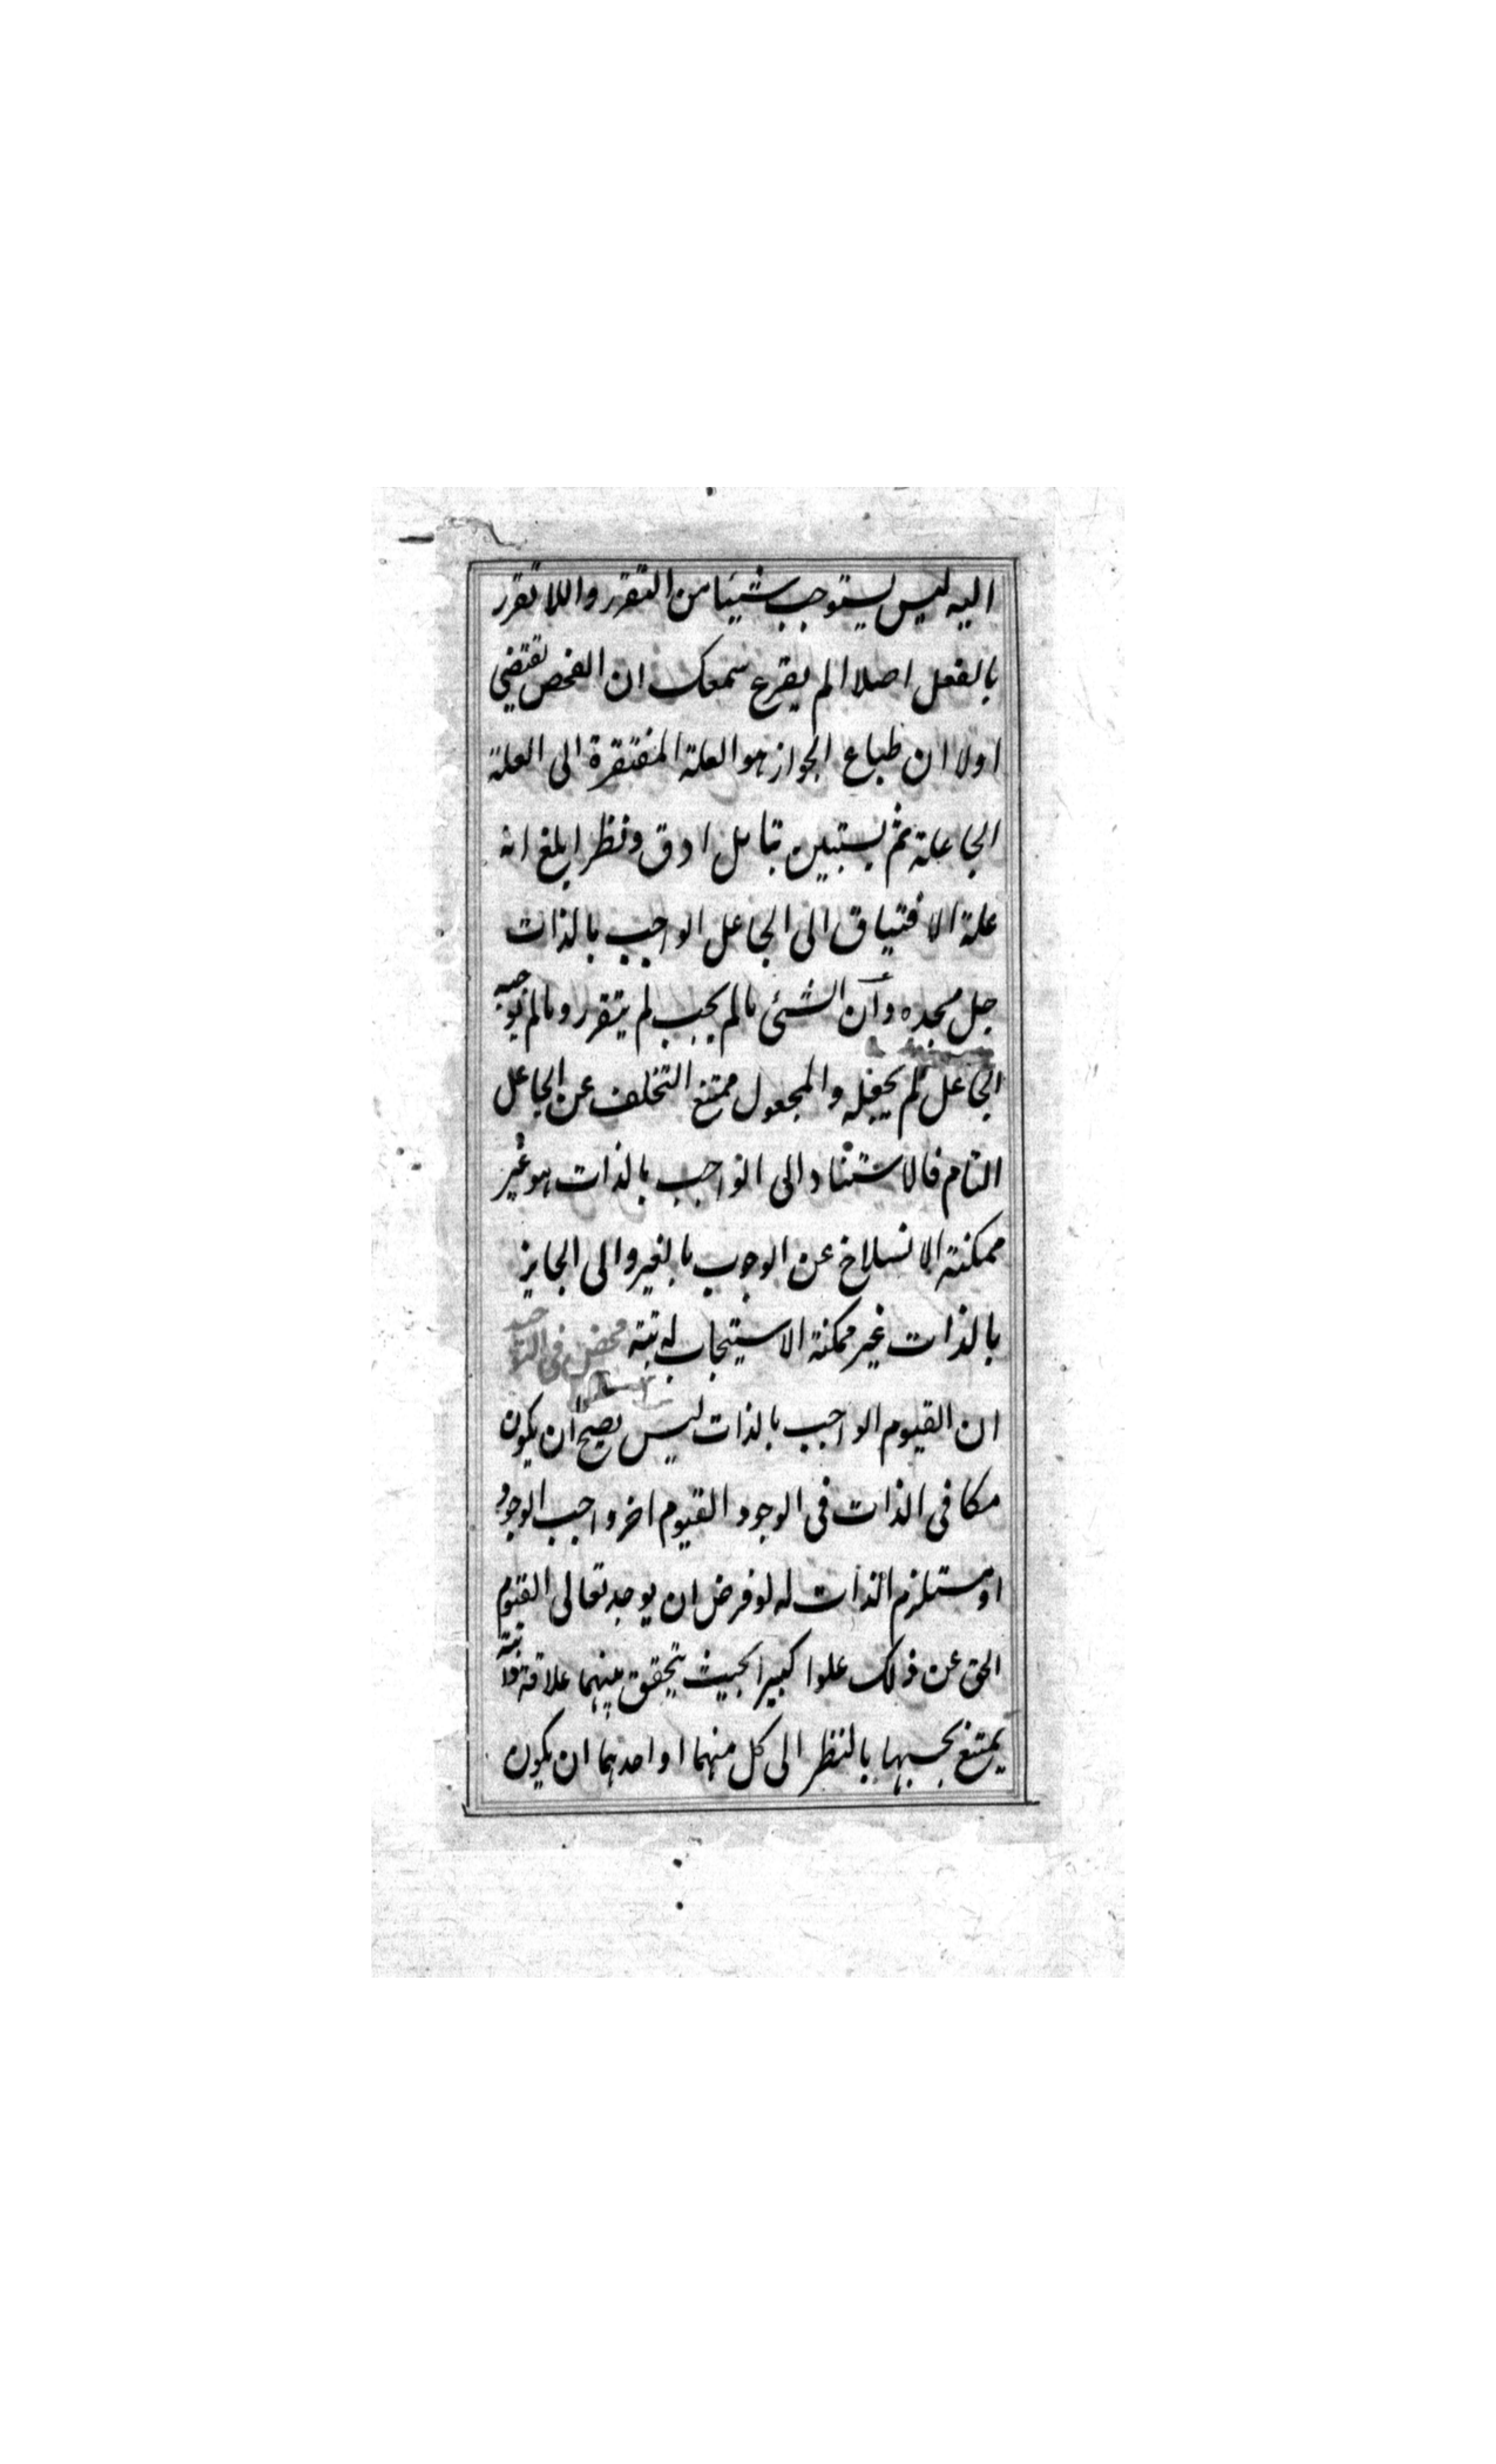 اليه ليس يستوجب شيئا من التقرر واللا تقرر
بالفعل اصلا الم يقرع سمعك ان الفحص يقتضي
اولا ان طباع الجواز هو العلة المفتقرة الى العلة
الجاعلة ثم يستبين بتامل ادق ونظر ابلغ انه
علة الافتياق الى الجاعل الواجب بالذات
جل مجده وان الشئ مالم يجب لم يتقرر ومالم يوجبه
الجاعل لم يجعله والمجعول ممتنع التخلف عن الجاعل
التام فالاستناد الى الواجب بالذات هو غير
ممكنة الانسلاخ عن الوجوب بالغير والى الجايز
بالذات غير ممكنة الاستيجاب له بتة محض في
ان القيوم الواجب بالذات ليس يصح ان يكون
مكافى الذات في الوجود القيوم اخر واجب الوجود
او مستلزم الذات له لو فرض ان يوجد تعالى القيوم
الحق عن ذلك علوا كبيرا بحيث يتحقق بينهما علاقة ذاتية
يمتنع بحسبها بالنظر الى كل منهما او احدهما ان يكون